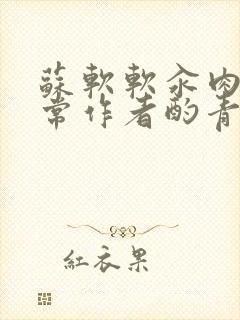 蘇軟軟汆肉
常作者酌青
紅衣果